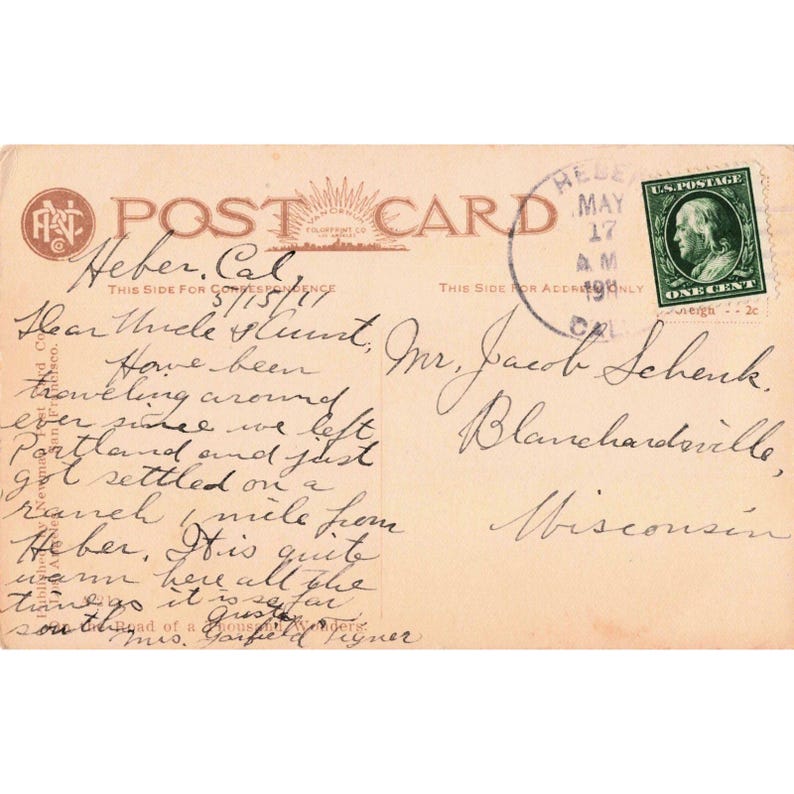 POST CARD
VAN ORNUM
COLORPRINT CO.
LOS ANGELES
THIS SIDE FOR CORRESPONDENCE
THIS SIDE FOR ADDRESS ONLY
HEBER
MAY
17
A M
191
CAL
U.S. POSTAGE
ONE CENT
Foreign - - 2c
Heber, Cal,
5/15/11
Dear Uncle & Aunt,
Have been
traveling around
ever since we left
Portland and just
got settled on a
ranch 1 mile from
Heber. It is quite
warm here all the
time as it is so far
south.
Gusta
Mrs. Garfield Vigner
Mr. Jacob Schenk.
Blanchardville,
Wisconsin
Published by Newman Post Card Co.
Los Angeles San Francisco.
On the Road of a Thousand Wonders.